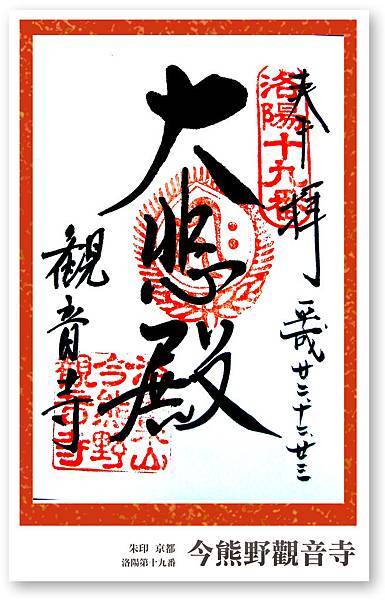 奉拝
平成廿二・十二・廿三
洛陽十九番
大悲殿
觀音寺
洛東山
今熊野
觀音寺
朱印 京都
洛陽第十九番
今熊野觀音寺